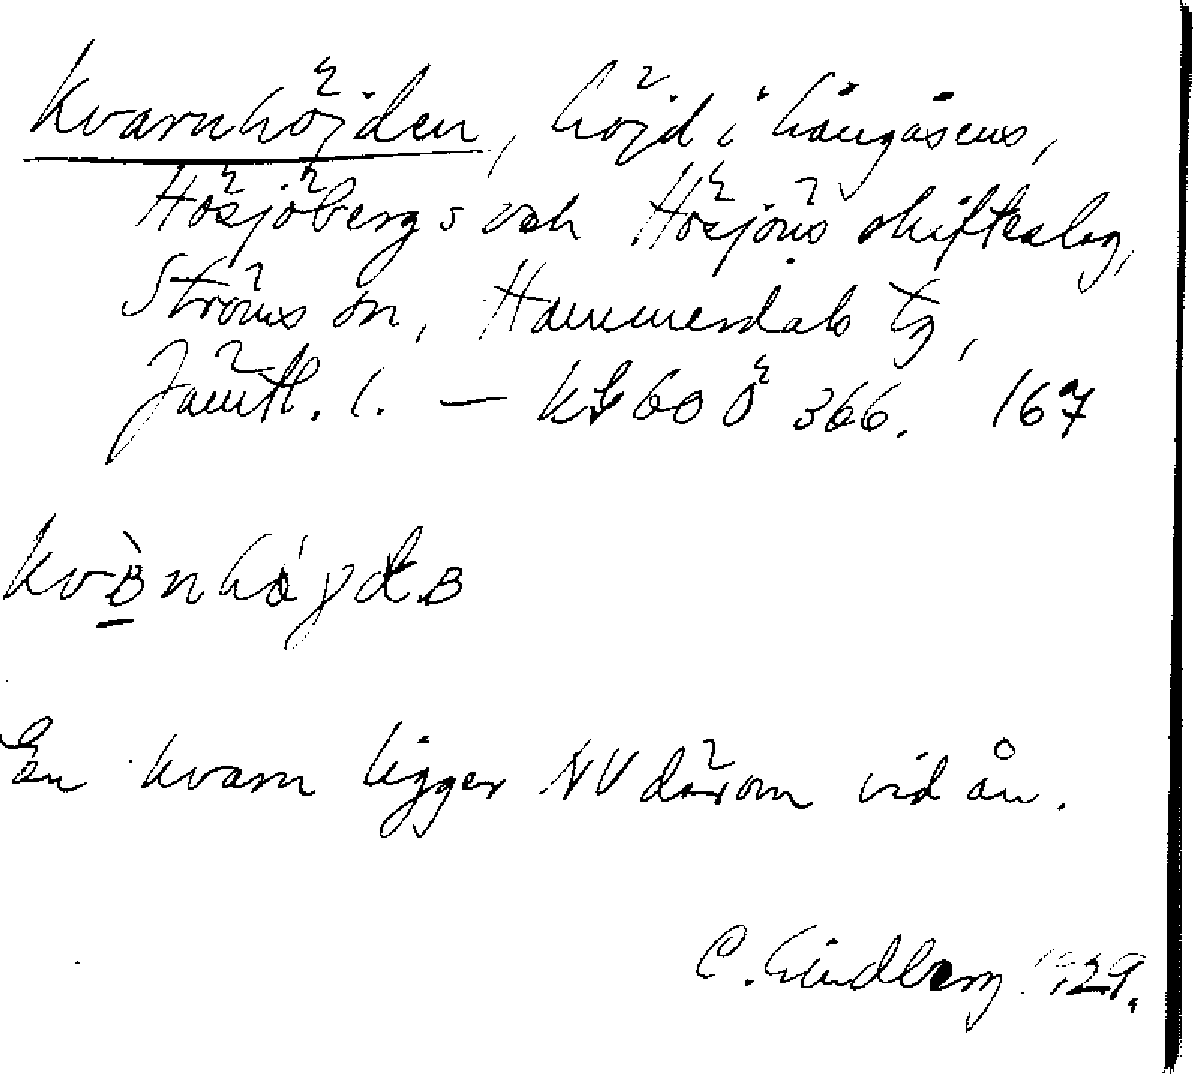 Kvarnhöjden, höjd i Långåsens,
Hösjöbergs och Hösjöns skifteslag,
Ströms sn, Hammerdals tg,
Jämtl. l. — kbl 60 Ö 366. 167
En kvarn ligger NV därom vid ån.
C. Lindberg 1929.